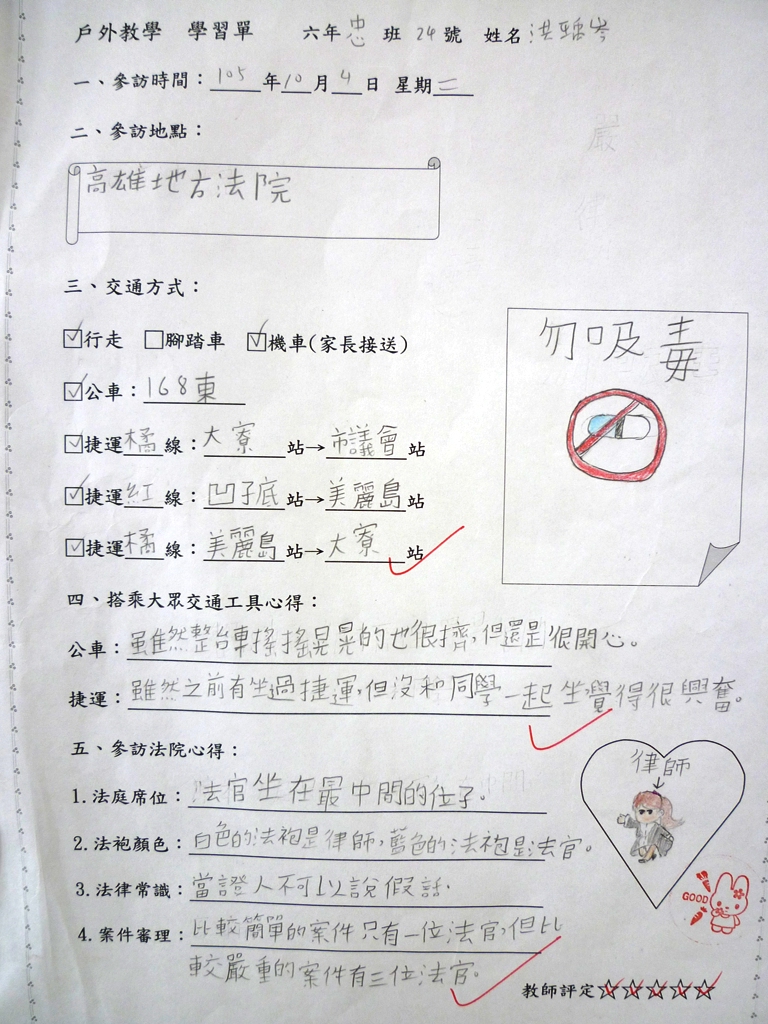 戶外教學 學習單 六年忠班 24號 姓名洪
一、參訪時間：105年10月4日 星期二
二、參訪地點：
高雄地方法院
三、交通方式：
☑行走 □腳踏車 ☑機車(家長接送)
☑公車：168東
☑捷運橘線：大寮站→市議會站
☑捷運紅線：凹子底站→美麗島站
☑捷運橘線：美麗島站→大寮站
勿吸毒
四、搭乘大眾交通工具心得：
公車：雖然整台車搖搖晃晃的也很擠，但還是很開心。
捷運：雖然之前有坐過捷運，但沒和同學一起坐覺得很興奮。
五、參訪法院心得：
1.法庭席位：法官坐在最中間的位子。
2.法袍顏色：白色的法袍是律師，藍色的法袍是法官。
3.法律常識：當證人不可以說假話.
4.案件審理：比較簡單的案件只有一位法官，但比
較嚴重的案件有三位法官。
律師
GOOD
教師評定☆☆☆☆☆